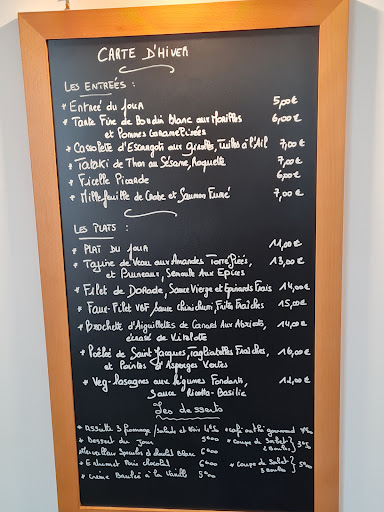 CARTE D'HIVER
LES ENTRÉES :
* ENTRÉE DU JOUR 5,00€
* Tarte Fine de Boudin Blanc aux Morilles 6,00€
et Pommes Caramélisées
* Cassolette d'Escargots aux Girolles, Tuiles à l'Ail 7,00€
* Tataki de Thon au Sésame, Roquette 7,00€
* Ficelle Picarde 6,00€
* Millefeuille de Crabe et Saumon Fumé 7,00€
LES PLATS :
* PLAT DU JOUR 11,00€
* Tajine de Veau aux Amandes Torréfiées, 13,00€
et Pruneaux, Semoule Aux Epices
* Filet de Dorade, Sauce Vierge et Epinards Frais 14,00€
* Faux-Filet VBF, Sauce Chimichurri, Frites Fraîches 15,00€
* Brochette d'Aiguillettes de Canard Aux Abricots, 14,00€
écrasé de Vitelotte
* Poêlée de Saint Jacques, Tagliatelles Fraîches, 16,00€
et Pointes d'Asperges Vertes
* Veg-lasagnes aux légumes Fondants, 12,00€
Sauce Ricotta-Basilic
Les desserts
* Assiette 3 fromage / salade et noix * Café ou thé gourmand
* Dessert du jour * Coupe de Sorbet 2 Boules
Merveilleux Speculos et chocolat Blanc
* Entremet Poire chocolat * Coupe de Sorbet 3 Boules
* Crème Brulée à la Vanille